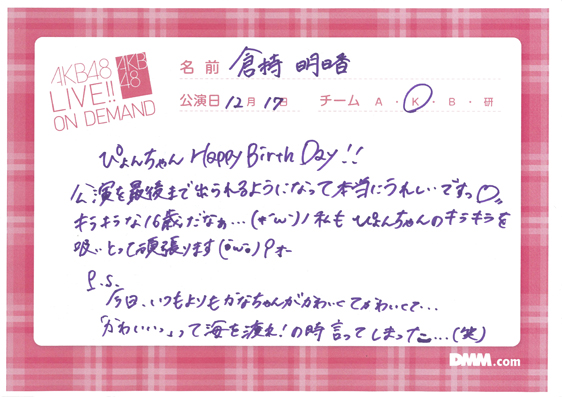 AKB48
LIVE!!
ON DEMAND
AKB
48
名前 倉持明日香
公演日 12月17日 チーム A・K・B・研
ぴょんちゃん Happy Birth Day!!
公演を最後まで出られるようになって本当にうれしいですっ♡
キラキラな16歳だなぁ…(*'ω')ノ私もぴょんちゃんのキラキラを
吸いとって頑張ります(oωo)
P.S.
今日、いつもよりもかなちゃんがかわいくてかわいくて…
「かわいいっ」って海を渡れ!の時言ってしまったこ…(笑)
DMM.com